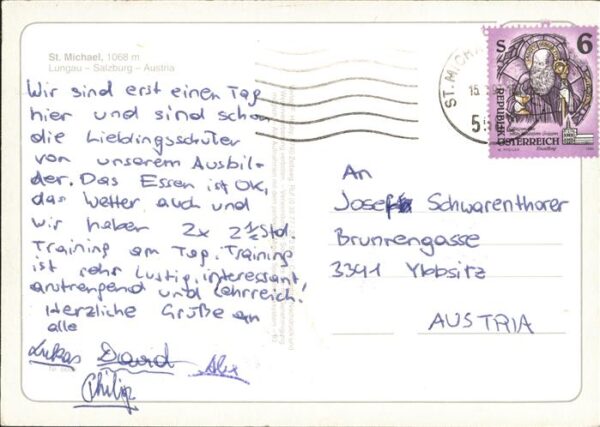 St. Michael, 1068 m
Lungau – Salzburg – Austria
Wir sind erst einen Tag
hier und sind schon
die Lieblingsschüler
von unserem Ausbil-
der. Das Essen ist OK,
das Wetter auch und
wir haben 2x 2½ Std.
Training am Tag. Training
ist sehr lustig, interessant,
anstrengend und lehrreich!
Herzliche Grüße an
alle
Lukas David Alex
Philip
ST. MICHA
15.
55
S 6
REPUBLIK
ÖSTERREICH
An
Josef Schwarenthorer
Brunnengasse
3341 Ybbsitz
AUSTRIA